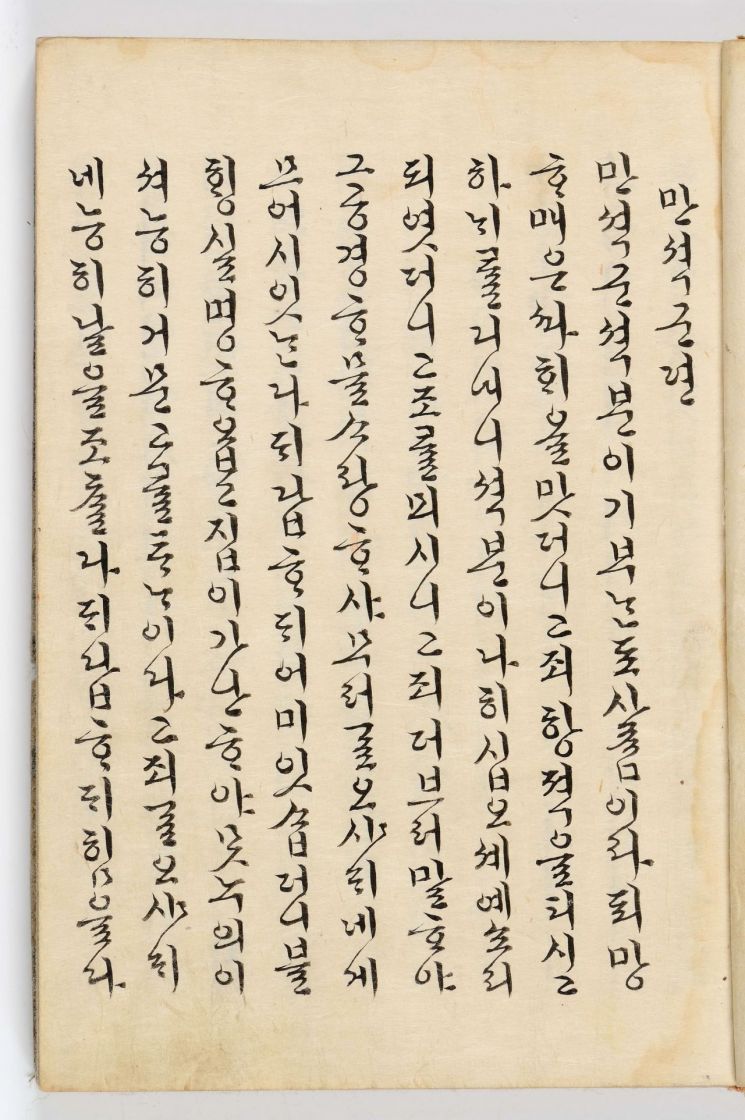 만셕군뎐
만셕군셕분이기부ᄂᆞᆫ됴사ᄅᆞᆷ이라됴망
ᄒᆞ매온ᄯᅡ회올맛더니고죄항젹을티실ᄉᆡ
하ᄂᆡᄅᆞᆯ디내니셕분이나히십오셰예쇼리
되엿더니고조ᄅᆞᆯ뫼시니고죄더브러말ᄒᆞ야
그공경ᄒᆞ믈ᄉᆞ랑ᄒᆞ샤무러ᄀᆞᆯ오샤ᄃᆡ네게
므어시잇ᄂᆞᆫ다ᄃᆡ답ᄒᆞᄃᆡ어미잇ᄉᆞᆸ더니블
ᄒᆡᆼ실명ᄒᆞᄋᆞᆸ고집이가난ᄒᆞ야ᄆᆞᆺ누의이
셔능히거문고ᄅᆞᆯᄐᆞᄂᆞ이다고죄ᄀᆞᆯ오샤ᄃᆡ
네능히날을조ᄎᆞᆯ다ᄃᆡ답ᄒᆞᄃᆡ힘을다